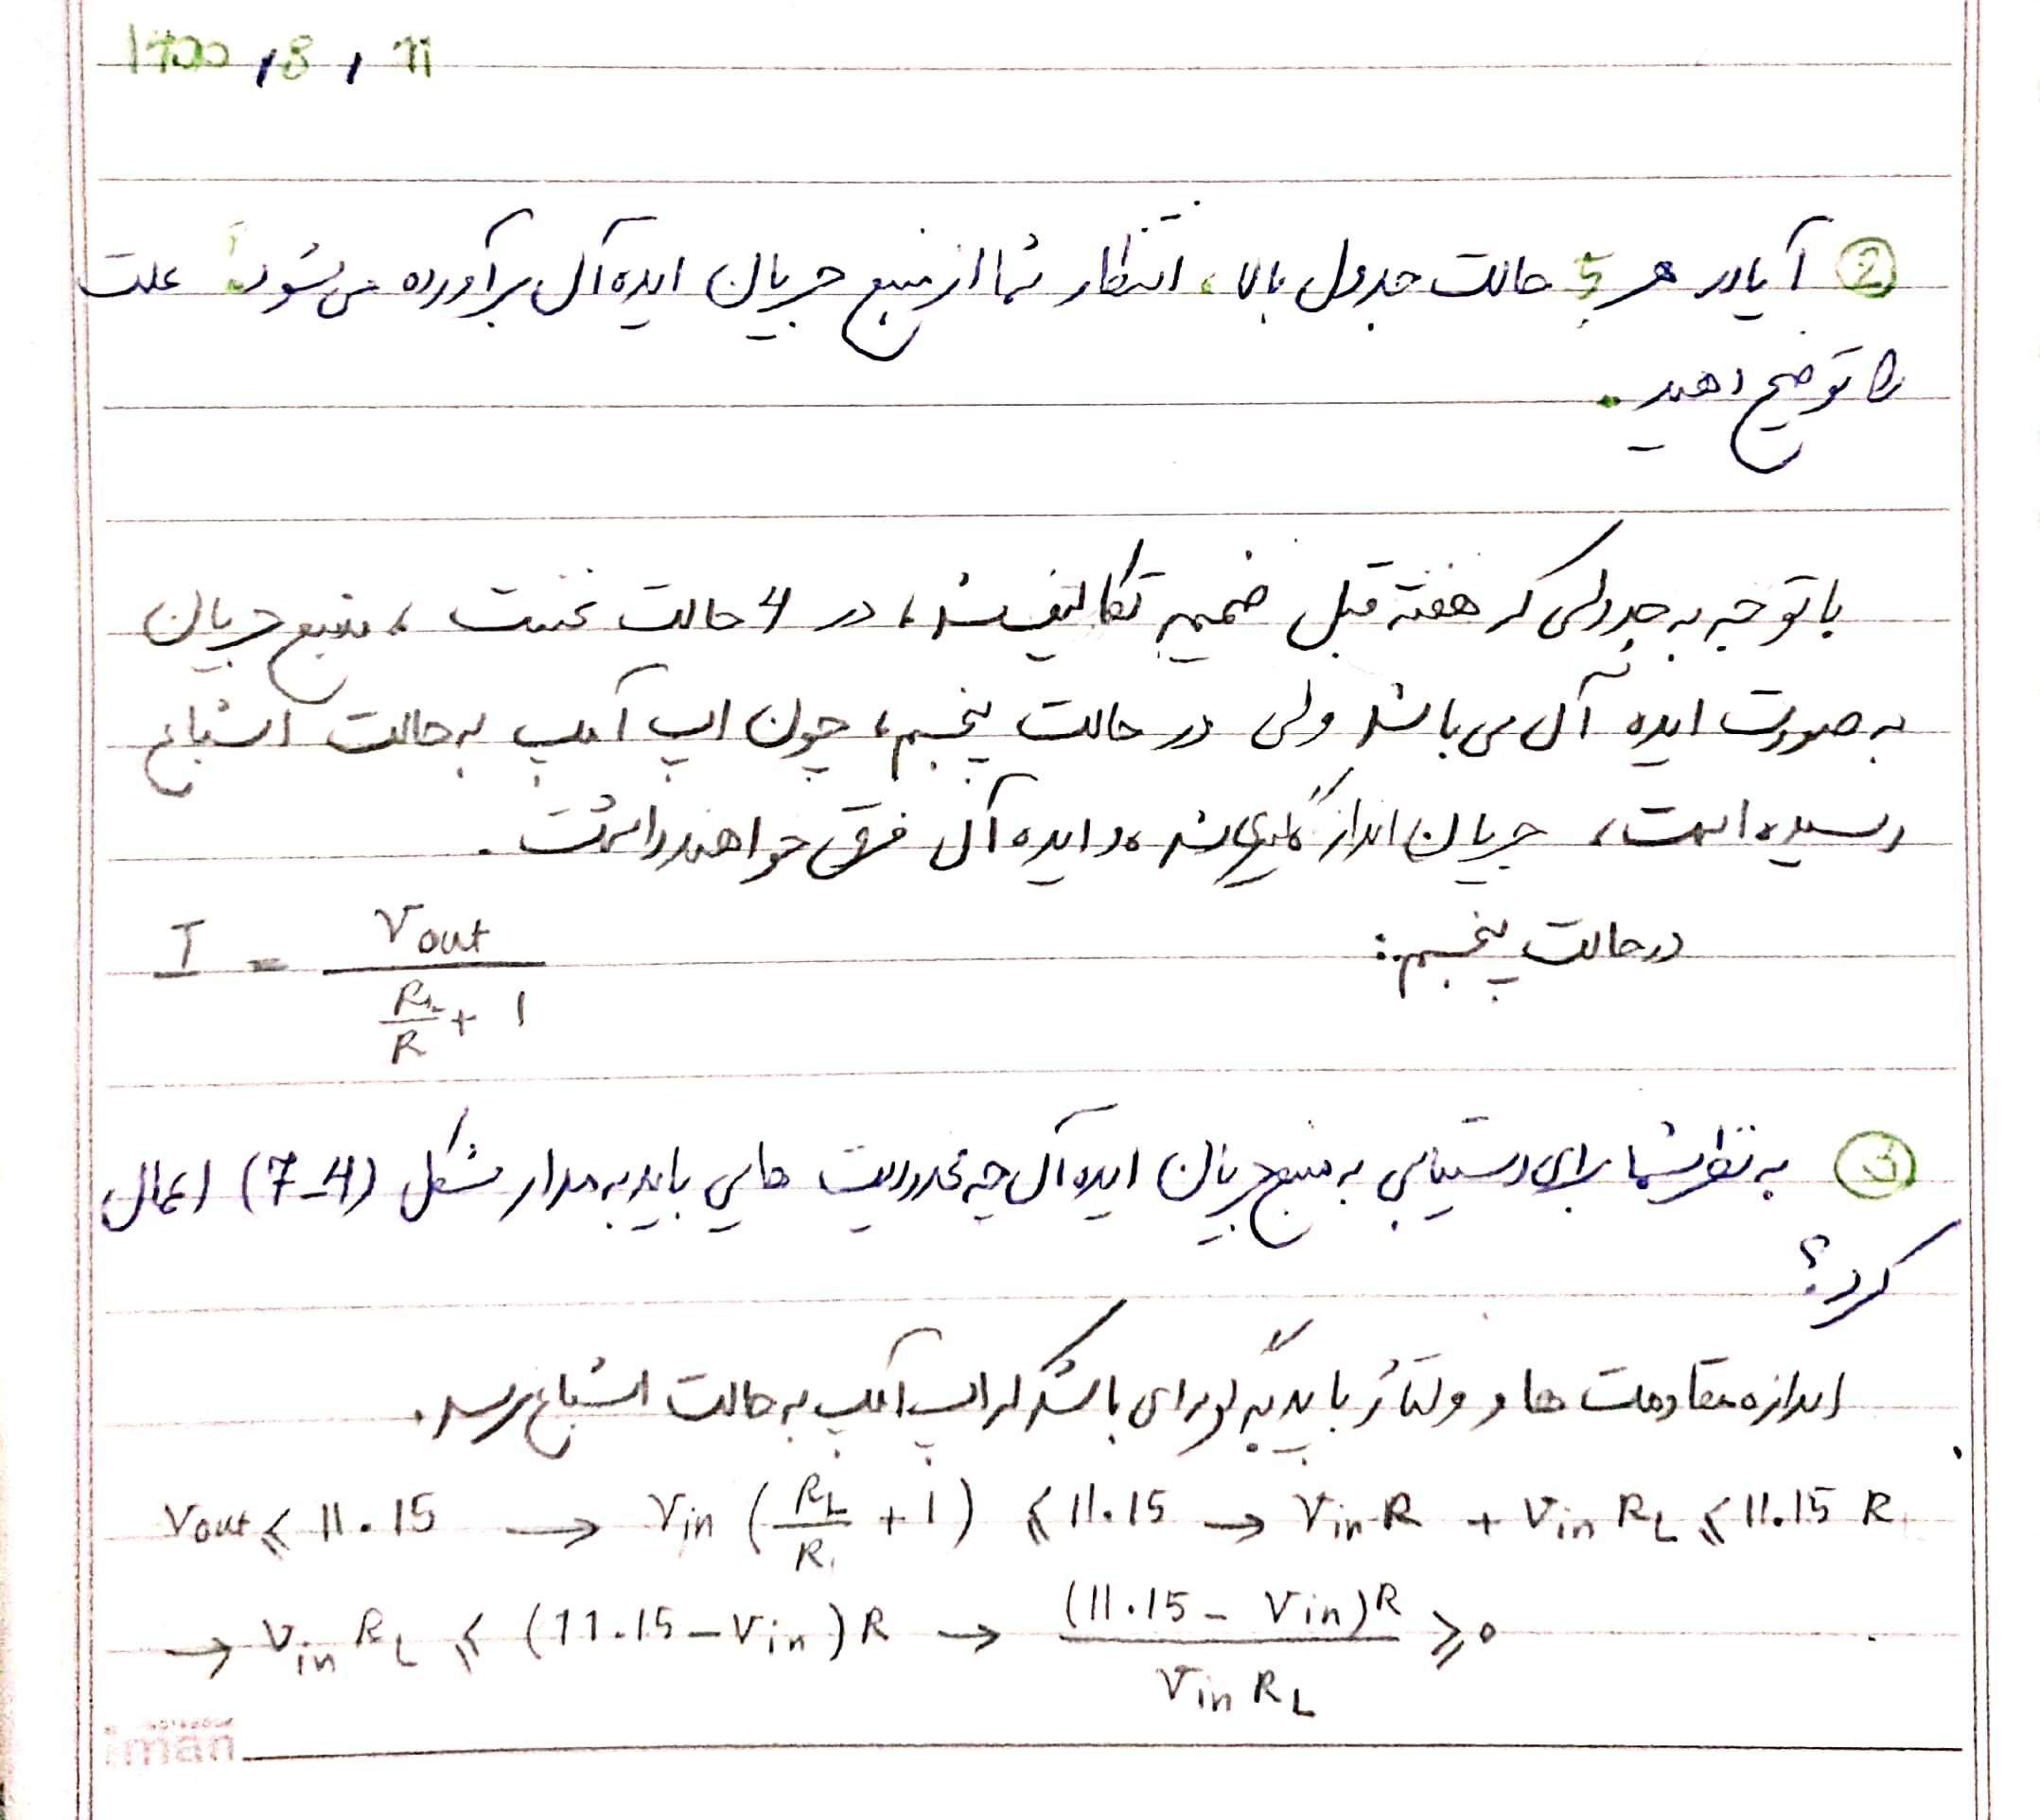 1400 / 8 / 11
② آیا در هر 5 حالت جدول بالا، انتظار شما از منبع جریان ایده آل برآورده می شود؟ علت
را توضیح دهید.
با توجه به جدولی که هفته قبل ضمیمه تکالیف شد، در 4 حالت نخست، منبع جریان
به صورت ایده آل می باشد ولی در حالت پنجم، چون اپ آمپ به حالت اشباع
رسیده است، جریان اندازه گیری شده و ایده آل فرق خواهند داشت.
در حالت پنجم: I = Vout / (RL/R + 1)
③ به نظر شما برای دستیابی به منبع جریان ایده آل چه محدودیت هایی باید به مدار شکل (7-4) اعمال
کرد؟
اندازه مقاومت ها و ولتاژ باید به گونه ای باشد که اپ آمپ به حالت اشباع نرسد.
Vout ⩽ 11.15 → Vin (RL/R + 1) ⩽ 11.15 → Vin R + Vin RL ⩽ 11.15 R
→ Vin RL ⩽ (11.15 - Vin) R → (11.15 - Vin) R / Vin RL ⩾ 0
man